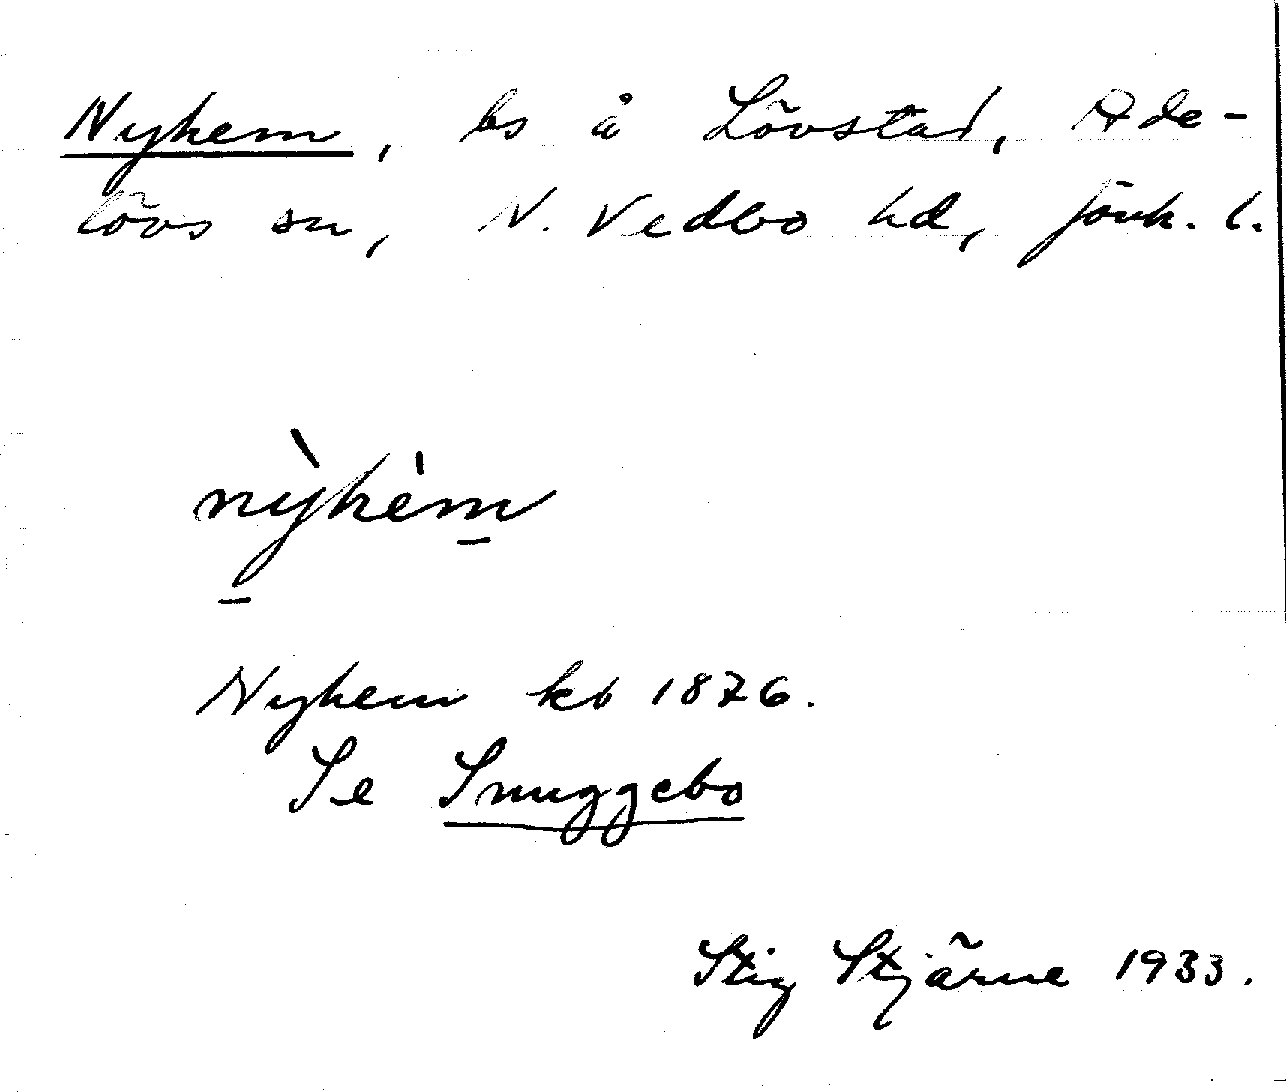 Nyhem, bs å Lövstad, Ade-
lövs sn, N. Vedbo hd, Jönk. l.
nỳhèm
Nyhem kb 1876.
Se Snuggebo
Stig Stjärne 1933.